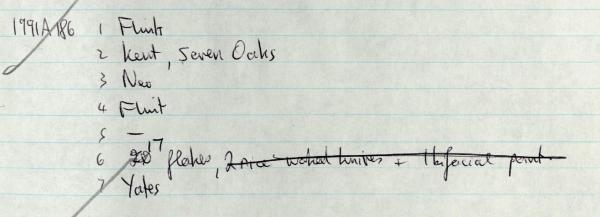 1991A186 1 Flint
2 Kent, Seven Oaks
3 Neo
4 Flint
5 —
6 17 flakes, knives + 1 bifacial point
7 Yates